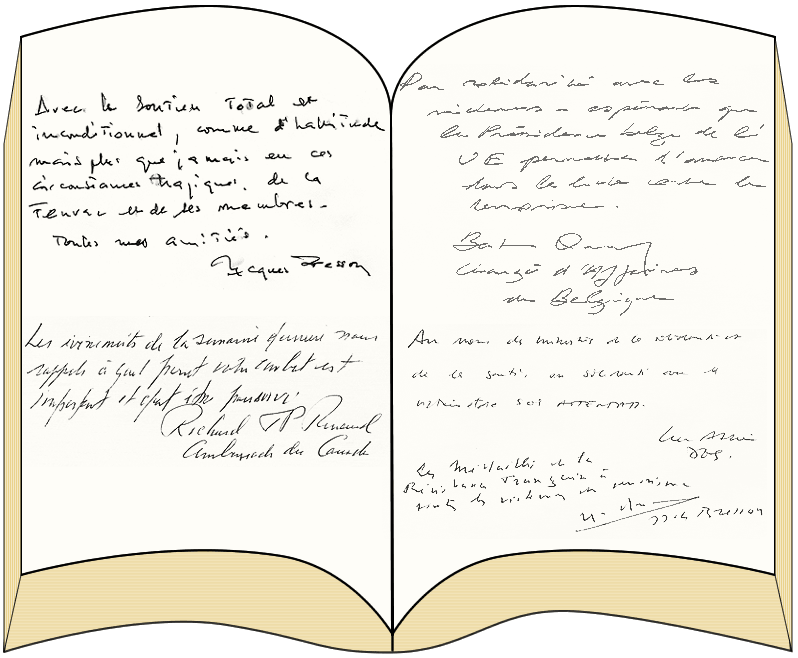 Avec le soutien total et
inconditionnel, comme d'habitude
mais plus que jamais en ces
circonstances tragiques, de la
Fenvac et de ses membres.
Toutes mes amitiés.
Jacques Bresson
Les évènements de la semaine dernière nous
rappels à quel point votre combat est
important et doit être poursuivi.
Richard TP Renaud
Ambassade du Canada
Par solidarité avec les
victimes espérant que
la Présidence belge de l'
UE permettra d'avancer
dans la lutte contre le
terrorisme.
Chargé d'Affaires
de Belgique
Au nom de la
de la santé, en solidarité avec
SOS ATTENTATS.
Les Médaillés de la
Résistance Française
les victimes du terrorisme
Bresson